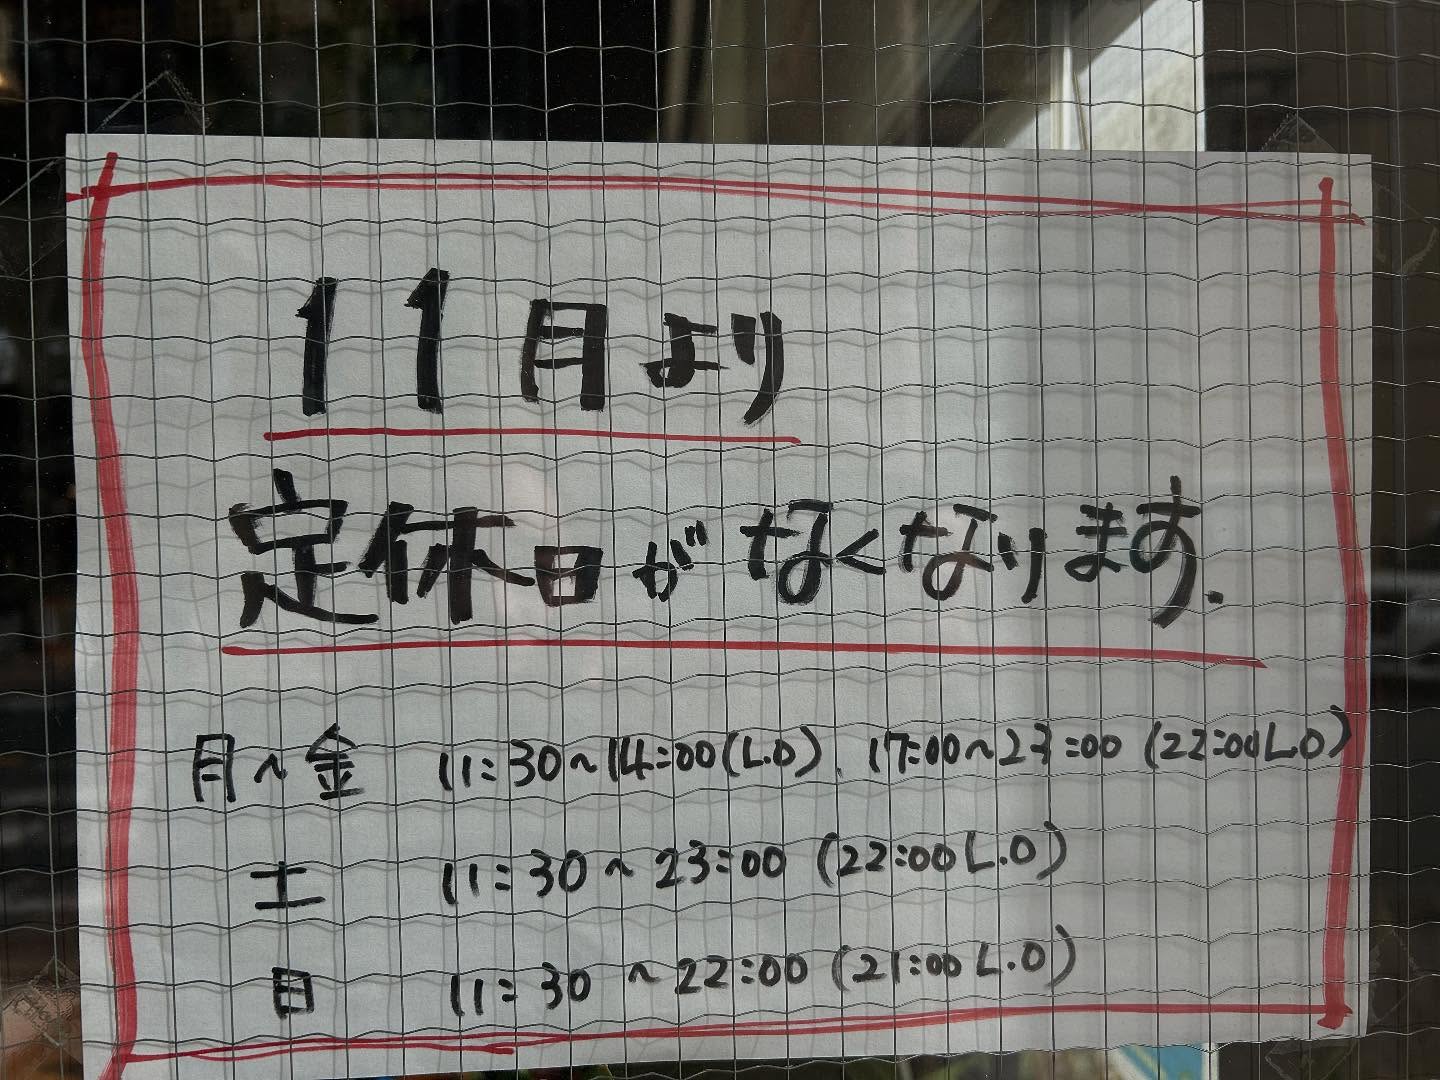 11月より
定休日がなくなります.
月～金 11:30～14:00(L.O). 17:00～23:00 (22:00LO)
土 11:30～23:00 (22:00L.O)
日 11:30～22:00 (21:00L.O)